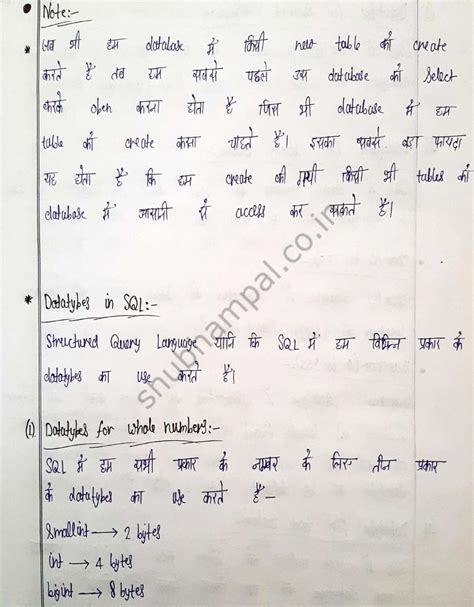 Note:-
जब भी हम database में किसी new table को create
करते हैं तब हम सबसे पहले उस database को select
करके open करना होता है जिस भी database में हम
table को create करना चाहते हैं। इसका सबसे बड़ा फायदा
यह होता है कि हम create की गयी किसी भी tables को
database में आसानी से access कर सकते हैं।
* Datatypes in SQL:-
Structured Query Language यानि कि SQL में हम विभिन्न प्रकार के
datatypes का use करते हैं।
(1) Datatypes for whole numbers:-
SQL में हम सभी प्रकार के नम्बर के लिए तीन प्रकार
के datatypes का use करते हैं-
smallint → 2 bytes
int → 4 bytes
bigint → 8 bytes
shubhampal.co.in